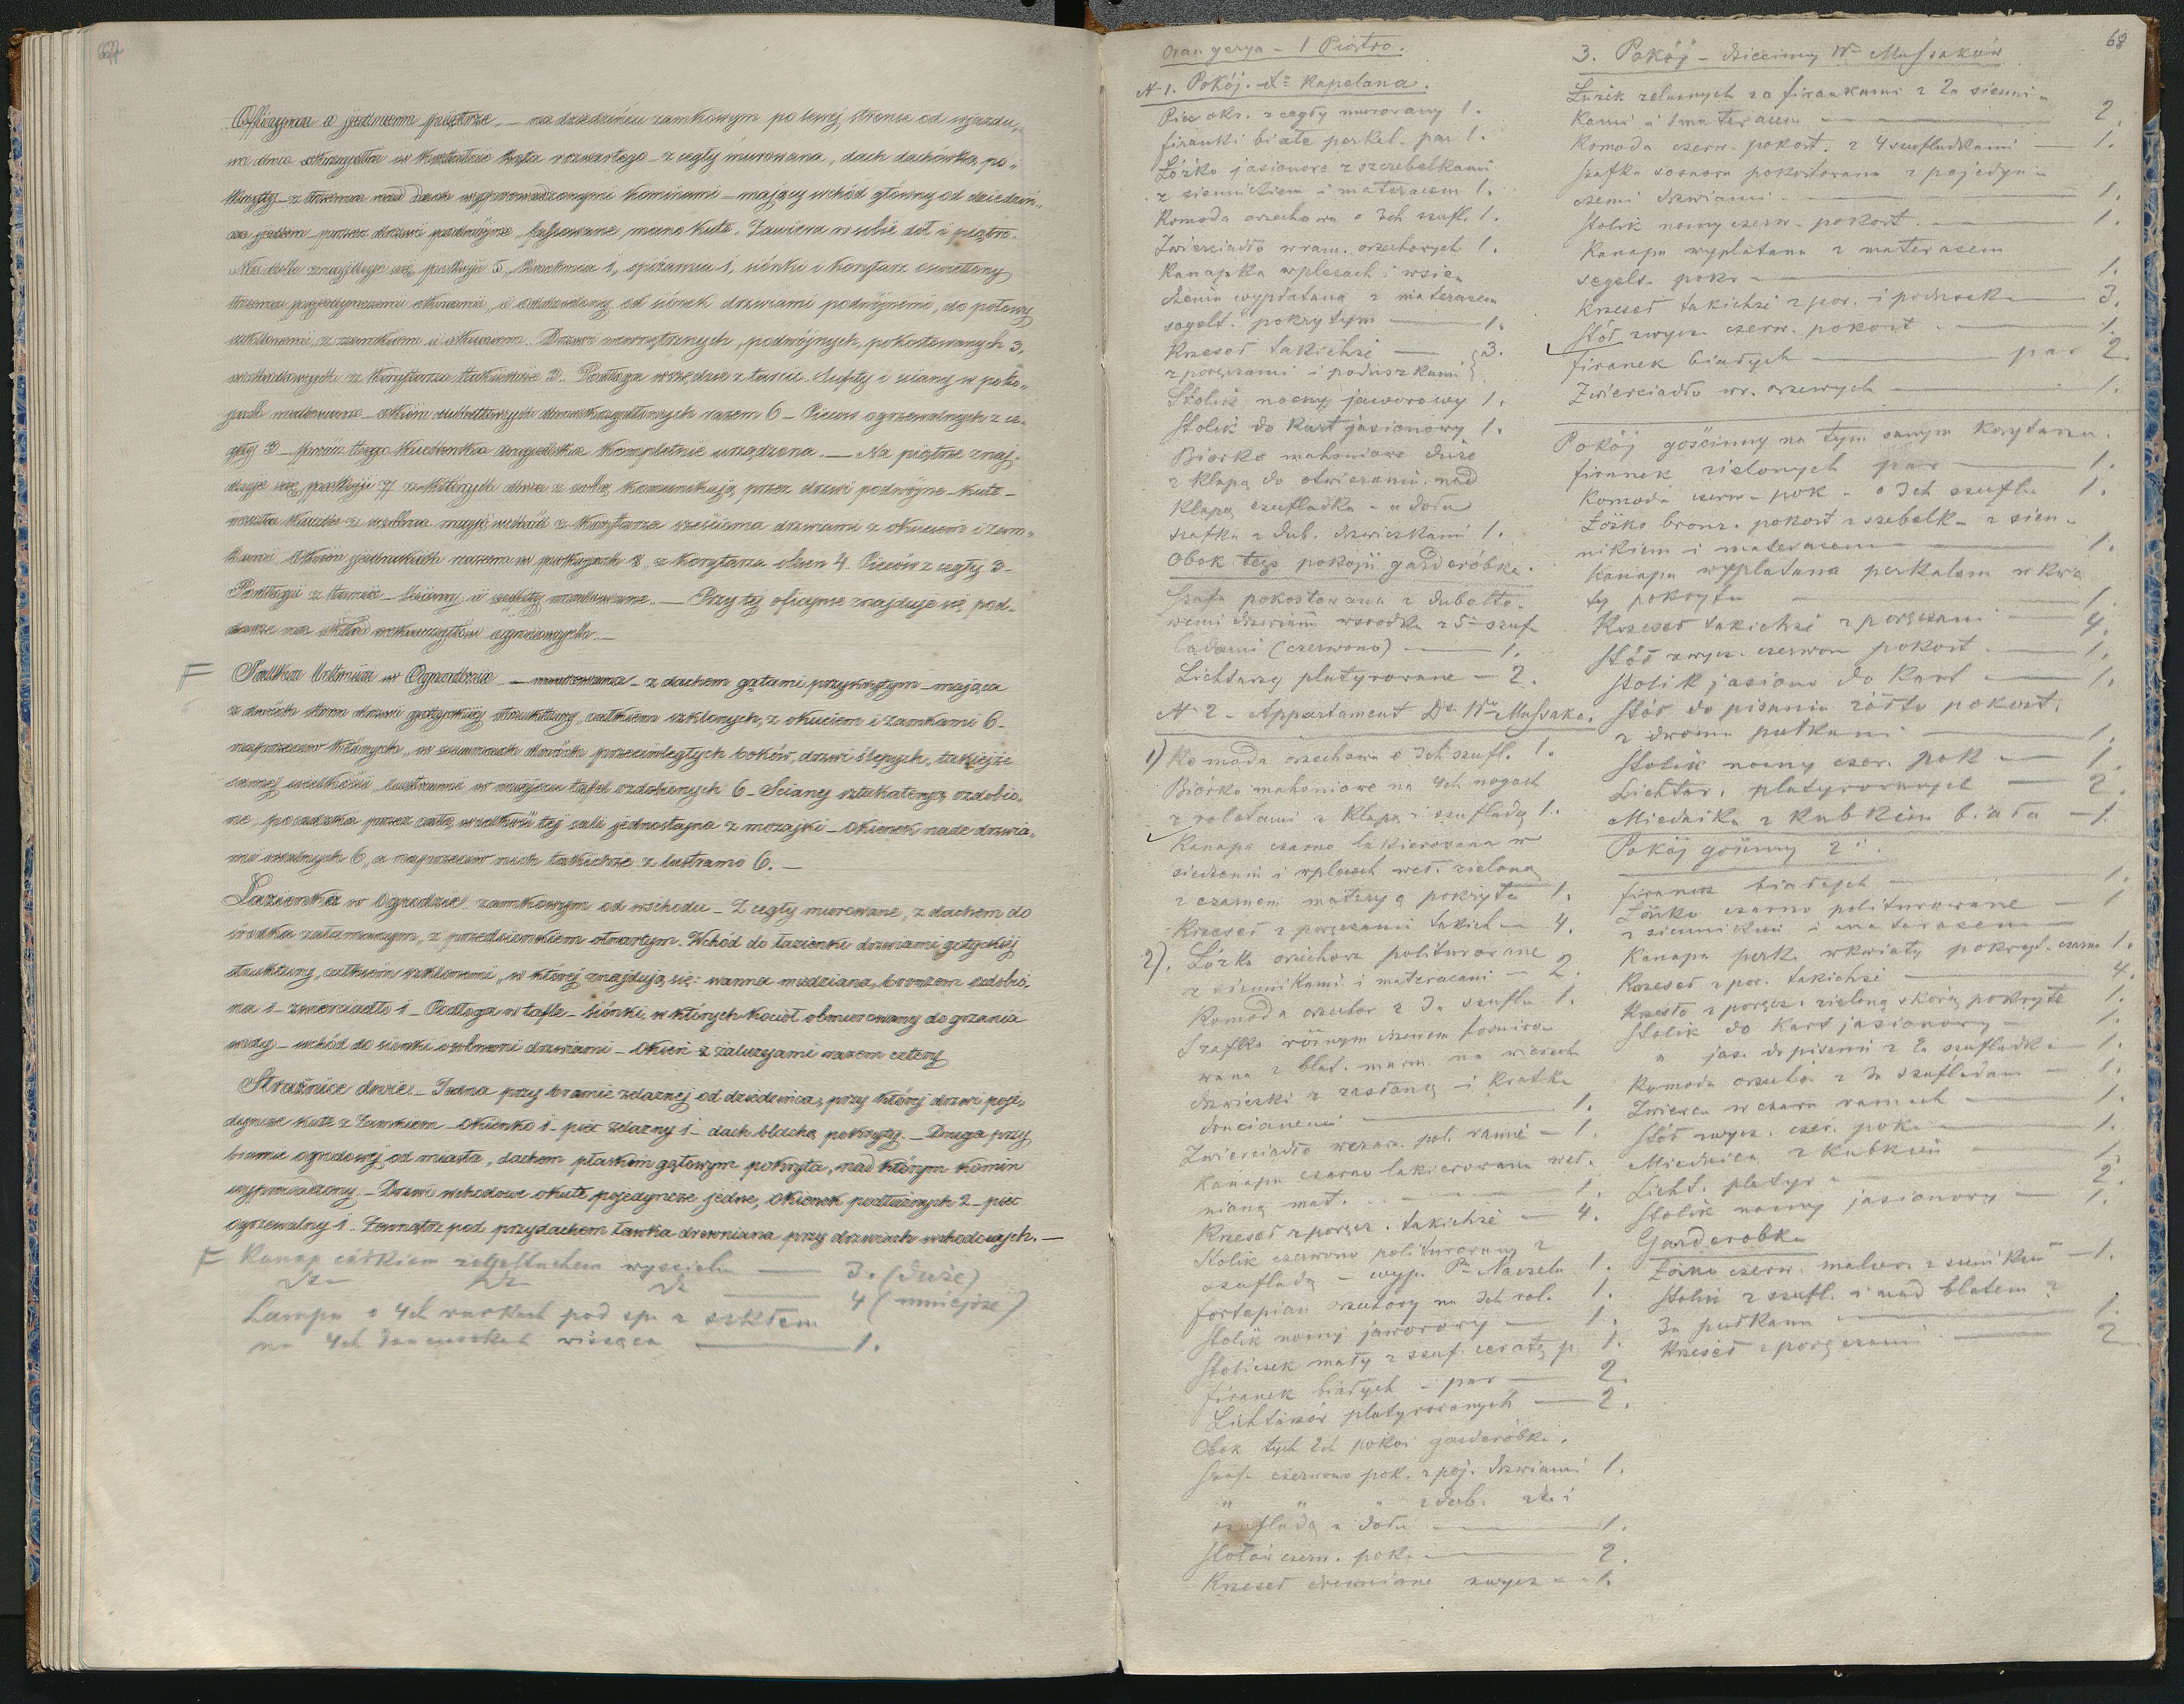 Officyna o jednem piętrze. — na dziedzińcu zamkowym po lewej stronie od wjazdu,
na dwa skrzydła w kształcie kąta rozwartego — z cegły murowana, dach dachówką po„
kryty — z trzema nad dach wyprowadzonymi kominami — mający wchód główny od dziedziń„
ca jeden — przez drzwi podwójne, fasowane, mano kute. Zawiera w sobie dół i piętro.
Na dole znajduje się pokoji 5, kuchnia 1, spiżarnia 1, siónki i korytarz oswietlony
trzema pojedynczemi oknami, i oddzielony od siónek drzwiami podwójnemi, do połowy
szklonemi, z zamkiem i okuciem. Drzwi wewnętrznych, podwójnych, pokostowanych 3,
wchodowych z korytarza takichże 3. Podłoga wszędzie z tarcic. Sufity i sciany w poko„
jach malowane — okien dubeltowych czworokątnych razem 6 — Pieców ogrzewalnych z ce„
gły 3 — prócz tego kuchenka angielska kompletnie urządzona. — Na piętrze znaj„
duje się pokoji 7 z których dwa z sobą komunikują przez drzwi podwójne — kute —
reszta każden z osobna mają wchód z korytarza sześcioma drzwiami z okuciem i zam„
kami. Okien jednakich razem w pokojach 8, z korytarza okien 4. Pieców z cegły 3 —
Podłogi z tarcic — Sciany i sufity malowane. — Przy tej oficynie znajduje się pod„
dasze na skład rekwizytów ogniowych. —
F Salka Letnia w Ogrodzie — murowana — z dachem gątami przykrytym — mająca
z dwóch stron drzwi gotyckiéj struktury, całkiem szklonych, z okuciem i zamkami 6 —
naprzeciw których, w scianach dwóch przeciwległych boków, drzwi ślepych, takiejże
samej wielkości, lustrami w miejscu tafel ozdobionych 6 — Sciany sztukateryą ozdobio„
ne, posadzka przez całą wielkość tej sali jednostajna z mozajki — Okienek nade drzwia„
mi owalnych 6, a naprzeciw nich takichże z lustrami 6. —
Łazienka w Ogrodzie zamkowym od wschodu — Z cegły murowane, z dachem do
środka załamanym, z przedsionkiem otwartym. Wchód do łazienki drzwiami gotyckiéj
struktury, całkiem szklonemi, w której znajdują się: wanna miedziana, bronzem ozdobio„
na 1 — zwierciadło 1 — Podłoga w tafle — siónki, w których kocioł obmurowany do grzania
wody — wchód do sionki osobnemi drzwiami — Okien z żaluzyami razem cztery
Strażnice dwie — Jedna przy bramie żelaznej od dziedzińca, przy której drzwi poje„
dyncze kute z zamkiem — Okienko 1 — piec żelazny 1 — dach blachą pokryty. — Druga przy
bramie ogrodowej od miasta, dachem płaskim gątowym pokryta, nad którym komin
wyprowadzony. — Drzwi wchodowe okute, pojedyncze jedne, Okienek podłużnych 2 — piec
ogrzewalny 1. Zewnątrz pod przydachem ławka drewniana przy drzwiach wchodowych. —
F Kanap całkiem wysciela — 3. (duże)
dto dto dto — 4 (mniejsze)
Lampa o 4ch pod sp. z szkłem
na 4ch wisząca — 1.
Orangerya — 1 Piętro.
N 1. Pokój. Kapelana.
Piec okr. z cegły murowany 1.
firanki białe perkal. par 1.
Łóżko jasionowe z szczebelkami
z siennikiem i materacem 1.
Komoda orzechowa o 3ch szufl. 1.
Zwierciadło w ram. orzechowych 1.
Kanapka w plecach i w sie„
dzeniu wyplatana z materacem
segelt. pokrytym — 1.
Krzeseł takichże — 3.
z poręczami i poduszkami
Stolik nocny jaworowy 1.
Stolik do kart jasionowy 1.
Biórko mahoniowe duże
z klapą do otwierania. nad
klapą szufladka — u dołu
szafka z dub. drzwiczkami 1.
Obok tego pokoju garderóbka.
Szafa pokostowana z dubelto„
wemi drzwiami wsrodku z 5 szuf„
ladami (czerwono) — 1.
Lichtarzy platyrowane — 2.
N 2 — Appartament Massaka.
1) Komoda orzechowa o 3ch szufl. 1.
Biórko mahoniowe na 4ch nogach
z roletami z klapą i szufladą 1.
Kanapa czarno lakierowana w
siedzeniu i w plecach weł. zieloną
z czarnem materyą pokryta 1.
Krzeseł z poręczami takich — 4.
2). Łóżka orzechowe politurowane
z siennikami i materacami — 2.
Komoda orzechow z 3a szufla 1.
Szafka różnym drzewem forniro„
wana z blat. marm. na wierzch
drzwiczki z zasłoną i kratką
drucianemi — 1.
Zwierciadło w czar. pol. ramie — 1.
Kanapa czarno lakierowana weł„
nianą mat. — 1.
Krzeseł z poręcz. takichże — 4.
Stolik czerwono politurowany z
szufladą — wyp. 1.
fortepian orzechowy na 3ch 1.
Stolik nocny jaworowy — 1.
Stoliczek mały z szuf. ceratą p. 1.
firanek białych — par — 2.
Lichtarzów platyrowanych — 2.
Obok tych 2ch pokoi garderóbka.
Szafa czerwono pok. z poj. drzwiami 1.
" " " z dub. i
szufladą u dołu — 1.
Stołów czerw. pok. — 2.
Krzeseł drewniane zwycz — 1.
68
3. Pokój — dziecinny Massaków
Łóżek żelaznych za firankami z 2a sienni„
kami i 2ma materacem — 2.
Komoda czerw. pokost. z 4 szufladkami — 1.
szafka sosnowa pokostowana z pojedyn„
czemi drzwiami — 1.
Stolik nocny czerw. pokost. — 1.
Kanapa wyplatana z materacem
segelt. pokr. — 1.
Krzeseł takichże z por. i poduszk. — 3.
Stół zwycz. czerw. pokost — 1.
firanek białych — par 2.
Zwierciadło wr. orzewych — 1.
Pokój gościnny na tym samym korytarzu.
firanek zielonych par — 1.
Komoda czerw. pok. o 3ch szufla 1.
Łóżko bronz. pokost z szebelk. z sien„
nikiem i materacem — 1.
Kanapa wyplatana perkalem w kwia
ty pokryta — 1.
Krzeseł takichże z poręczami — 4.
Stół zwycz. czerwon pokost — 1.
Stolik jasiono do kart — 1.
Stół do pisania żółto pokost.
z dwoma pułkami — 1.
Stolik nocny czer. pok — 1.
Lichtar. platyrowanych — 2.
Miednika z kubkiem biała — 1.
Pokój gościnny 2.
firanek białych — 1.
Łóżko czarno politurowane — 1
z siennikiem i materacem —
Kanapa perk. w kwiaty pokryt. czarna 1.
Krzeseł z por. takichże — 4.
Krzesło z poręcz. zieloną skórą pokryte 1.
Stolik do kart jasionowy — 1.
" jas. do pisania z 2a szufladk. — 1.
Komoda orzecho. z 3a szufladami — 1.
Zwierca w czarn ramach — 1.
Stół zwycz. czer. pok. — 1.
Miednica z kubkiem — 1.
Licht. platyr — 2.
Stolik nocny jasionowy — 1.
Garderobka
Łóżko czerw. malow. z siennikiem — 1.
Stolik z szufl. i nad blatem z
3a pułkami — 1.
Krzeseł z poręczami — 2